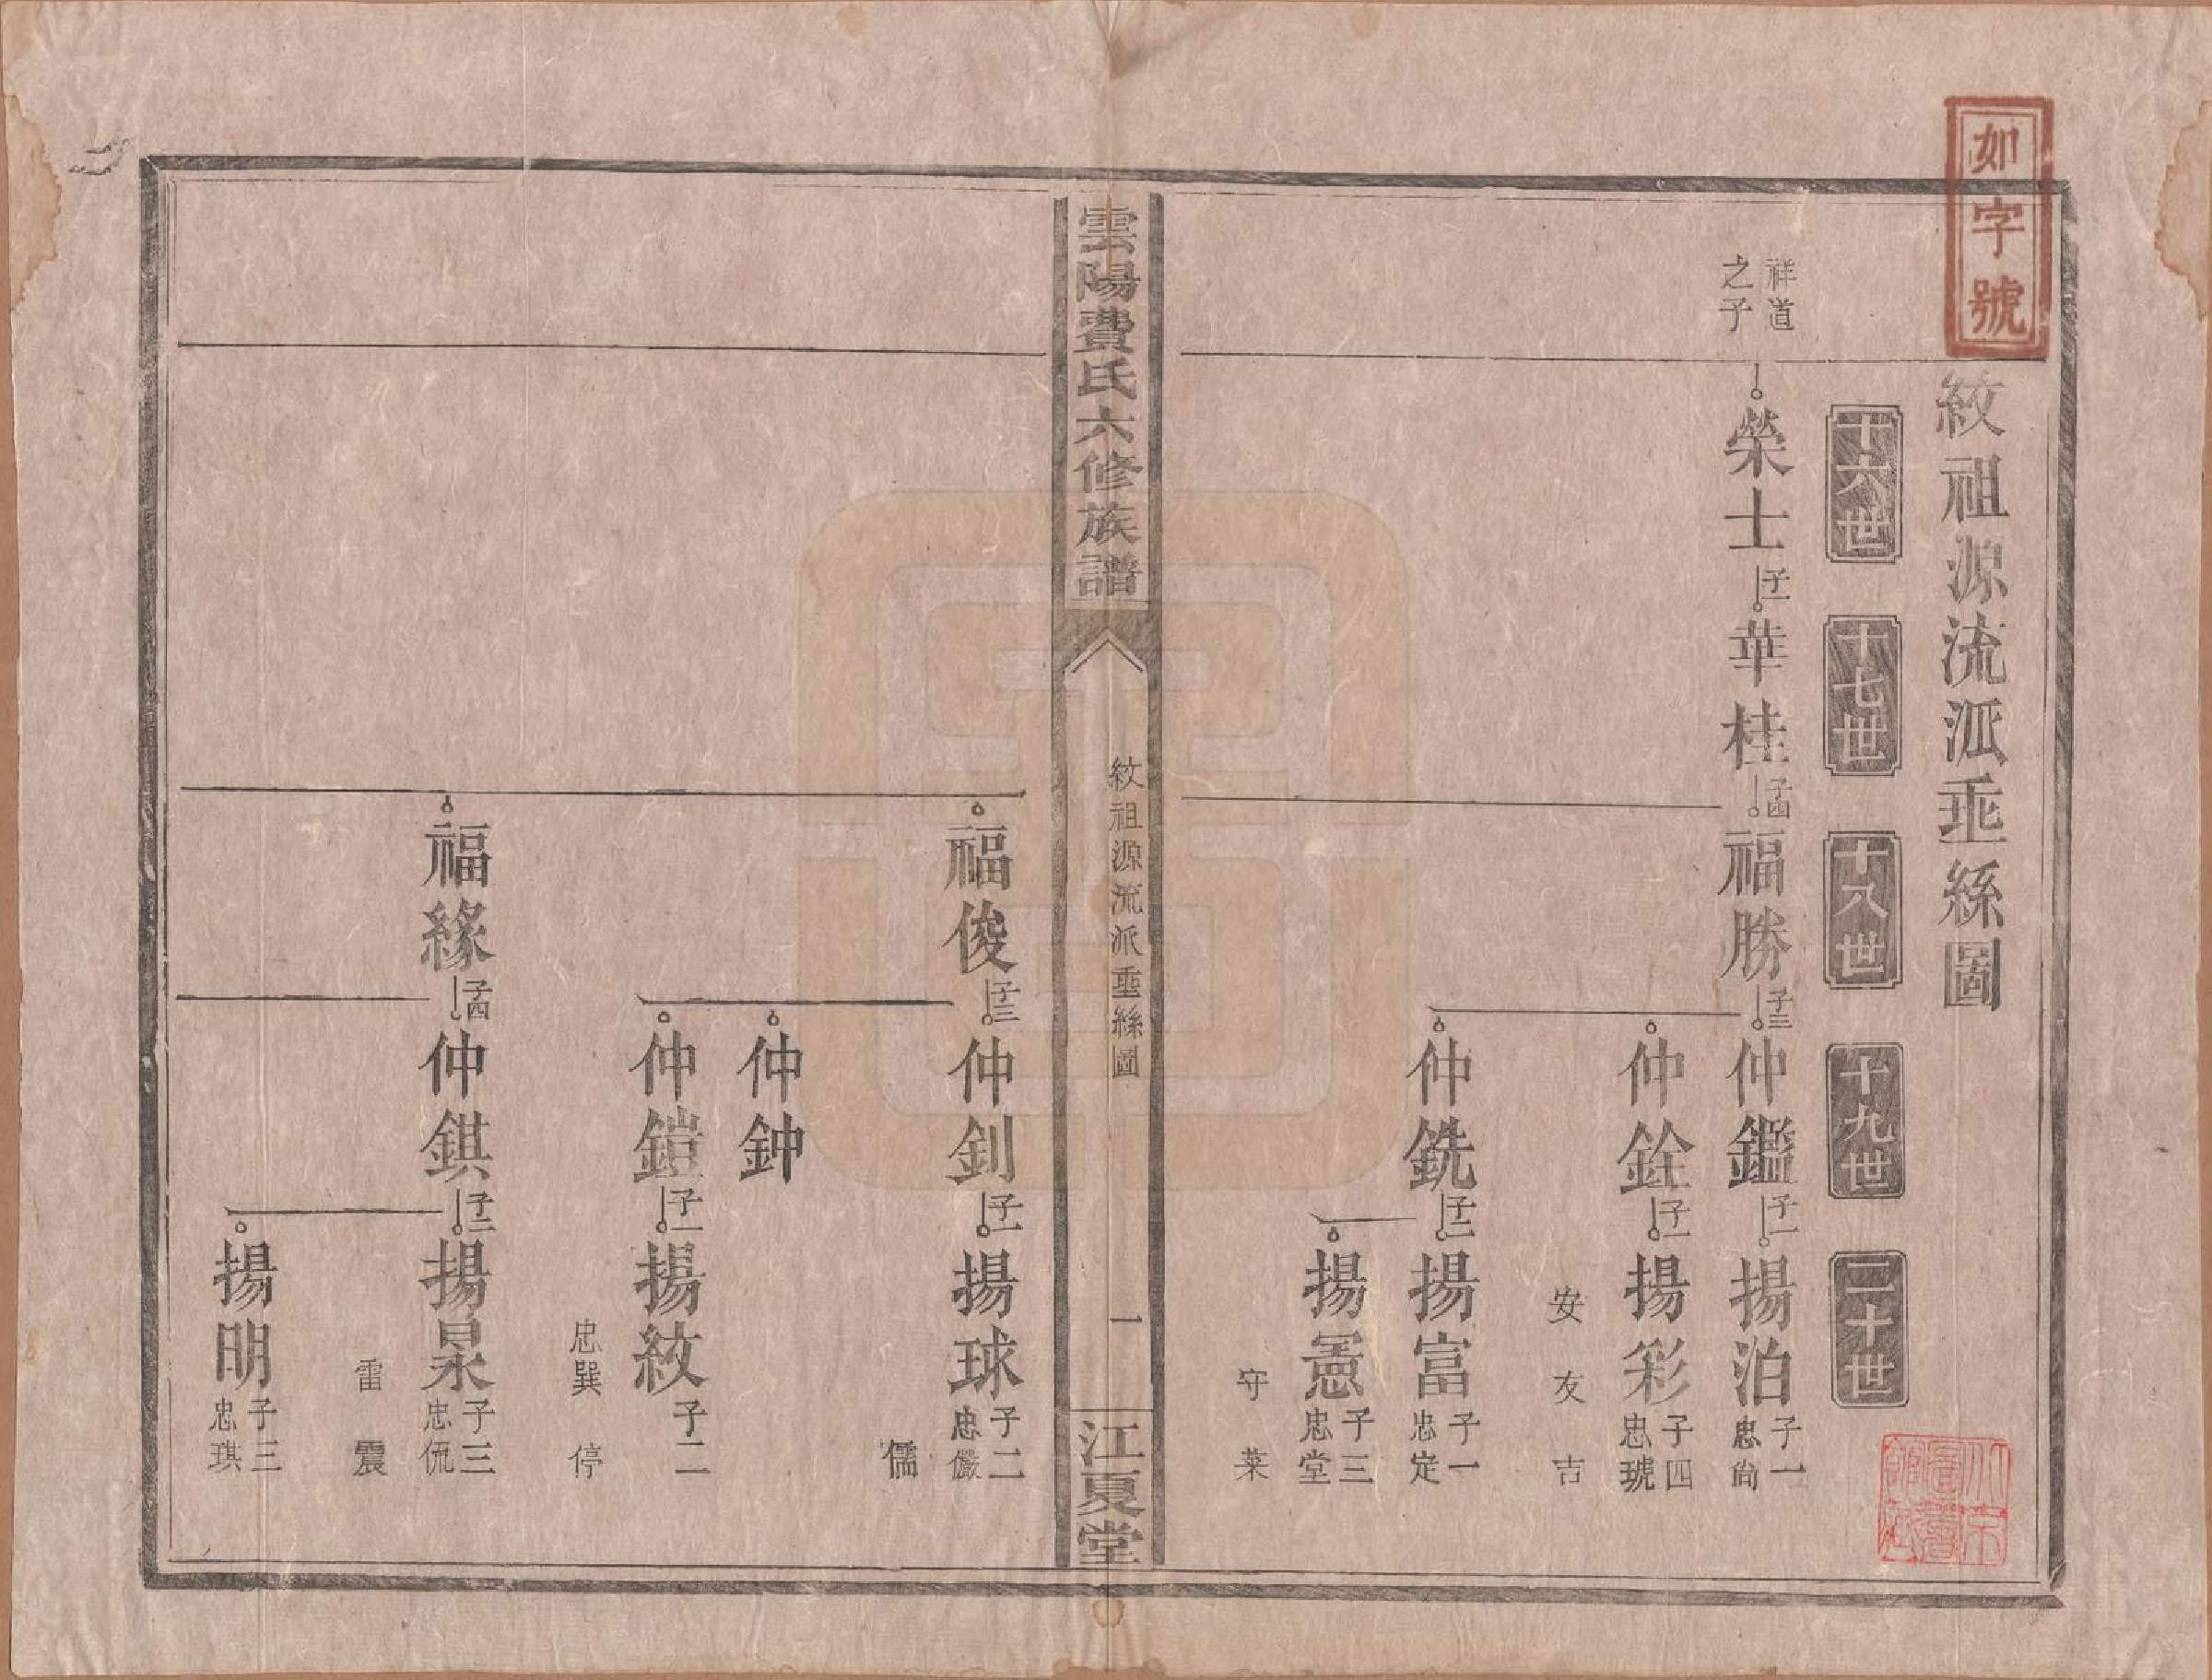 如字號
紋祖源流派垂絲圖
十六世
十七世
十八世
十九世
二十世
祥道
之子
榮士
子一
華桂
子四
福勝
子三
仲鑑
子一
揚泊
子一
忠尙
仲銓
子一
揚彩
子四
忠琥
安友吉
仲銑
子二
揚富
子一
忠定
揚憲
子三
忠堂
守菜
雲陽費氏六修族譜
紋祖源流派垂絲圖
一
江夏堂
福俊
子三
仲釗
子一
揚球
子二
忠儼
儒
仲鈡
仲鎧
子一
揚紋
子二
忠巽
停
福緣
子四
仲錤
子二
揚泉
子三
忠侃
雷震
揚明
子三
忠琪